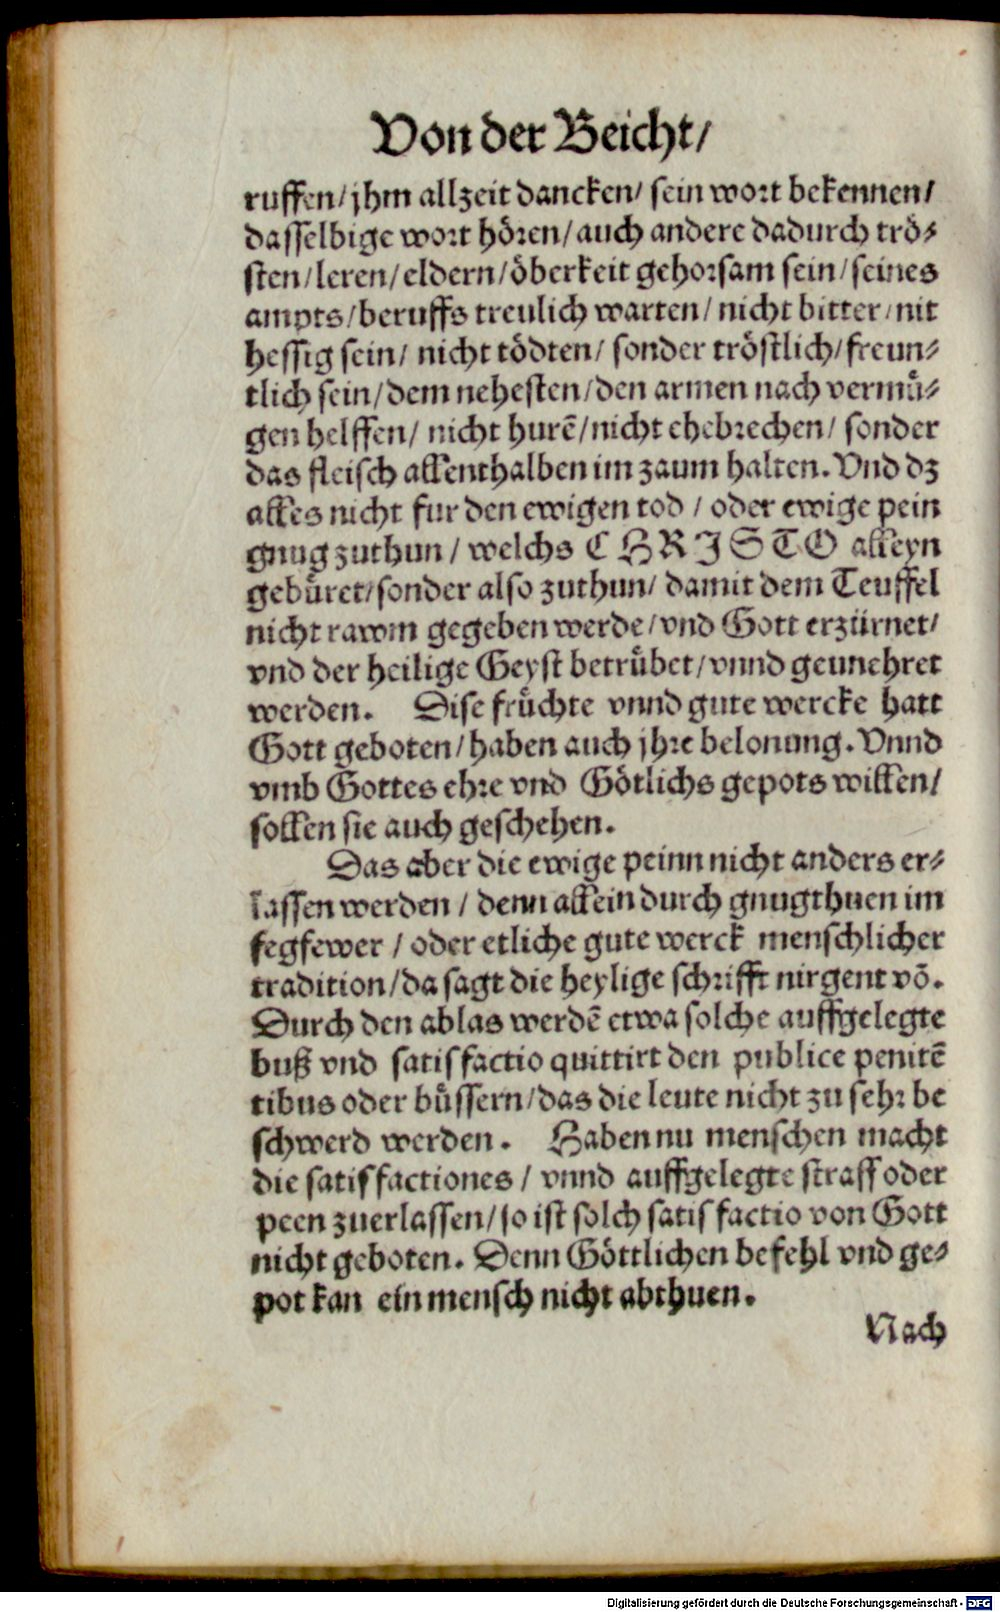 Von der Beicht/
ruffen/jhm allzeit dancken/ sein wort bekennen/
dasselbige wort hören/auch andere dadurch trö-
sten/leren/eldern/öberkeit gehorsam sein/seines
ampts/beruffs treulich warten/ nicht bitter/nit
hessig sein/ nicht tödten/ sonder tröstlich/freun-
tlich sein/dem nehesten/den armen nach vermü-
gen helffen/ nicht hurē/nicht ehebrechen/ sonder
das fleisch allenthalben im zaum halten. Vnd dz
alles nicht fur den ewigen tod / oder ewige pein
gnug zuthun / welchs CHRISTO alleyn
gebüret/sonder also zuthun/ damit dem Teuffel
nicht rawm gegeben werde/vnd Gott erzürnet/
vnd der heilige Geyst betrübet/vnnd geunehret
werden. Dise früchte vnnd gute wercke hatt
Gott geboten/haben auch jhre belonung. Vnnd
vmb Gottes ehre vnd Götlichs gepots willen/
sollen sie auch geschehen.
Das aber die ewige peinn nicht anders er-
lassen werden / denn allein durch gnugthuen im
fegfewer / oder etliche gute werck menschlicher
tradition/da sagt die heylige schrifft nirgent vō.
Durch den ablas werdē etwa solche auffgelegte
buß vnd satisfactio quittirt den publice penitē
tibus oder büssern/das die leute nicht zu sehr be
schwerd werden. Haben nu menschen macht
die satisfactiones / vnnd auffgelegte straff oder
peen zuerlassen/so ist solch satisfactio von Gott
nicht geboten. Denn Göttlichen befehl vnd ge-
pot kan ein mensch nicht abthuen.
Nach
Digitalisierung gefördert durch die Deutsche Forschungsgemeinschaft - DFG